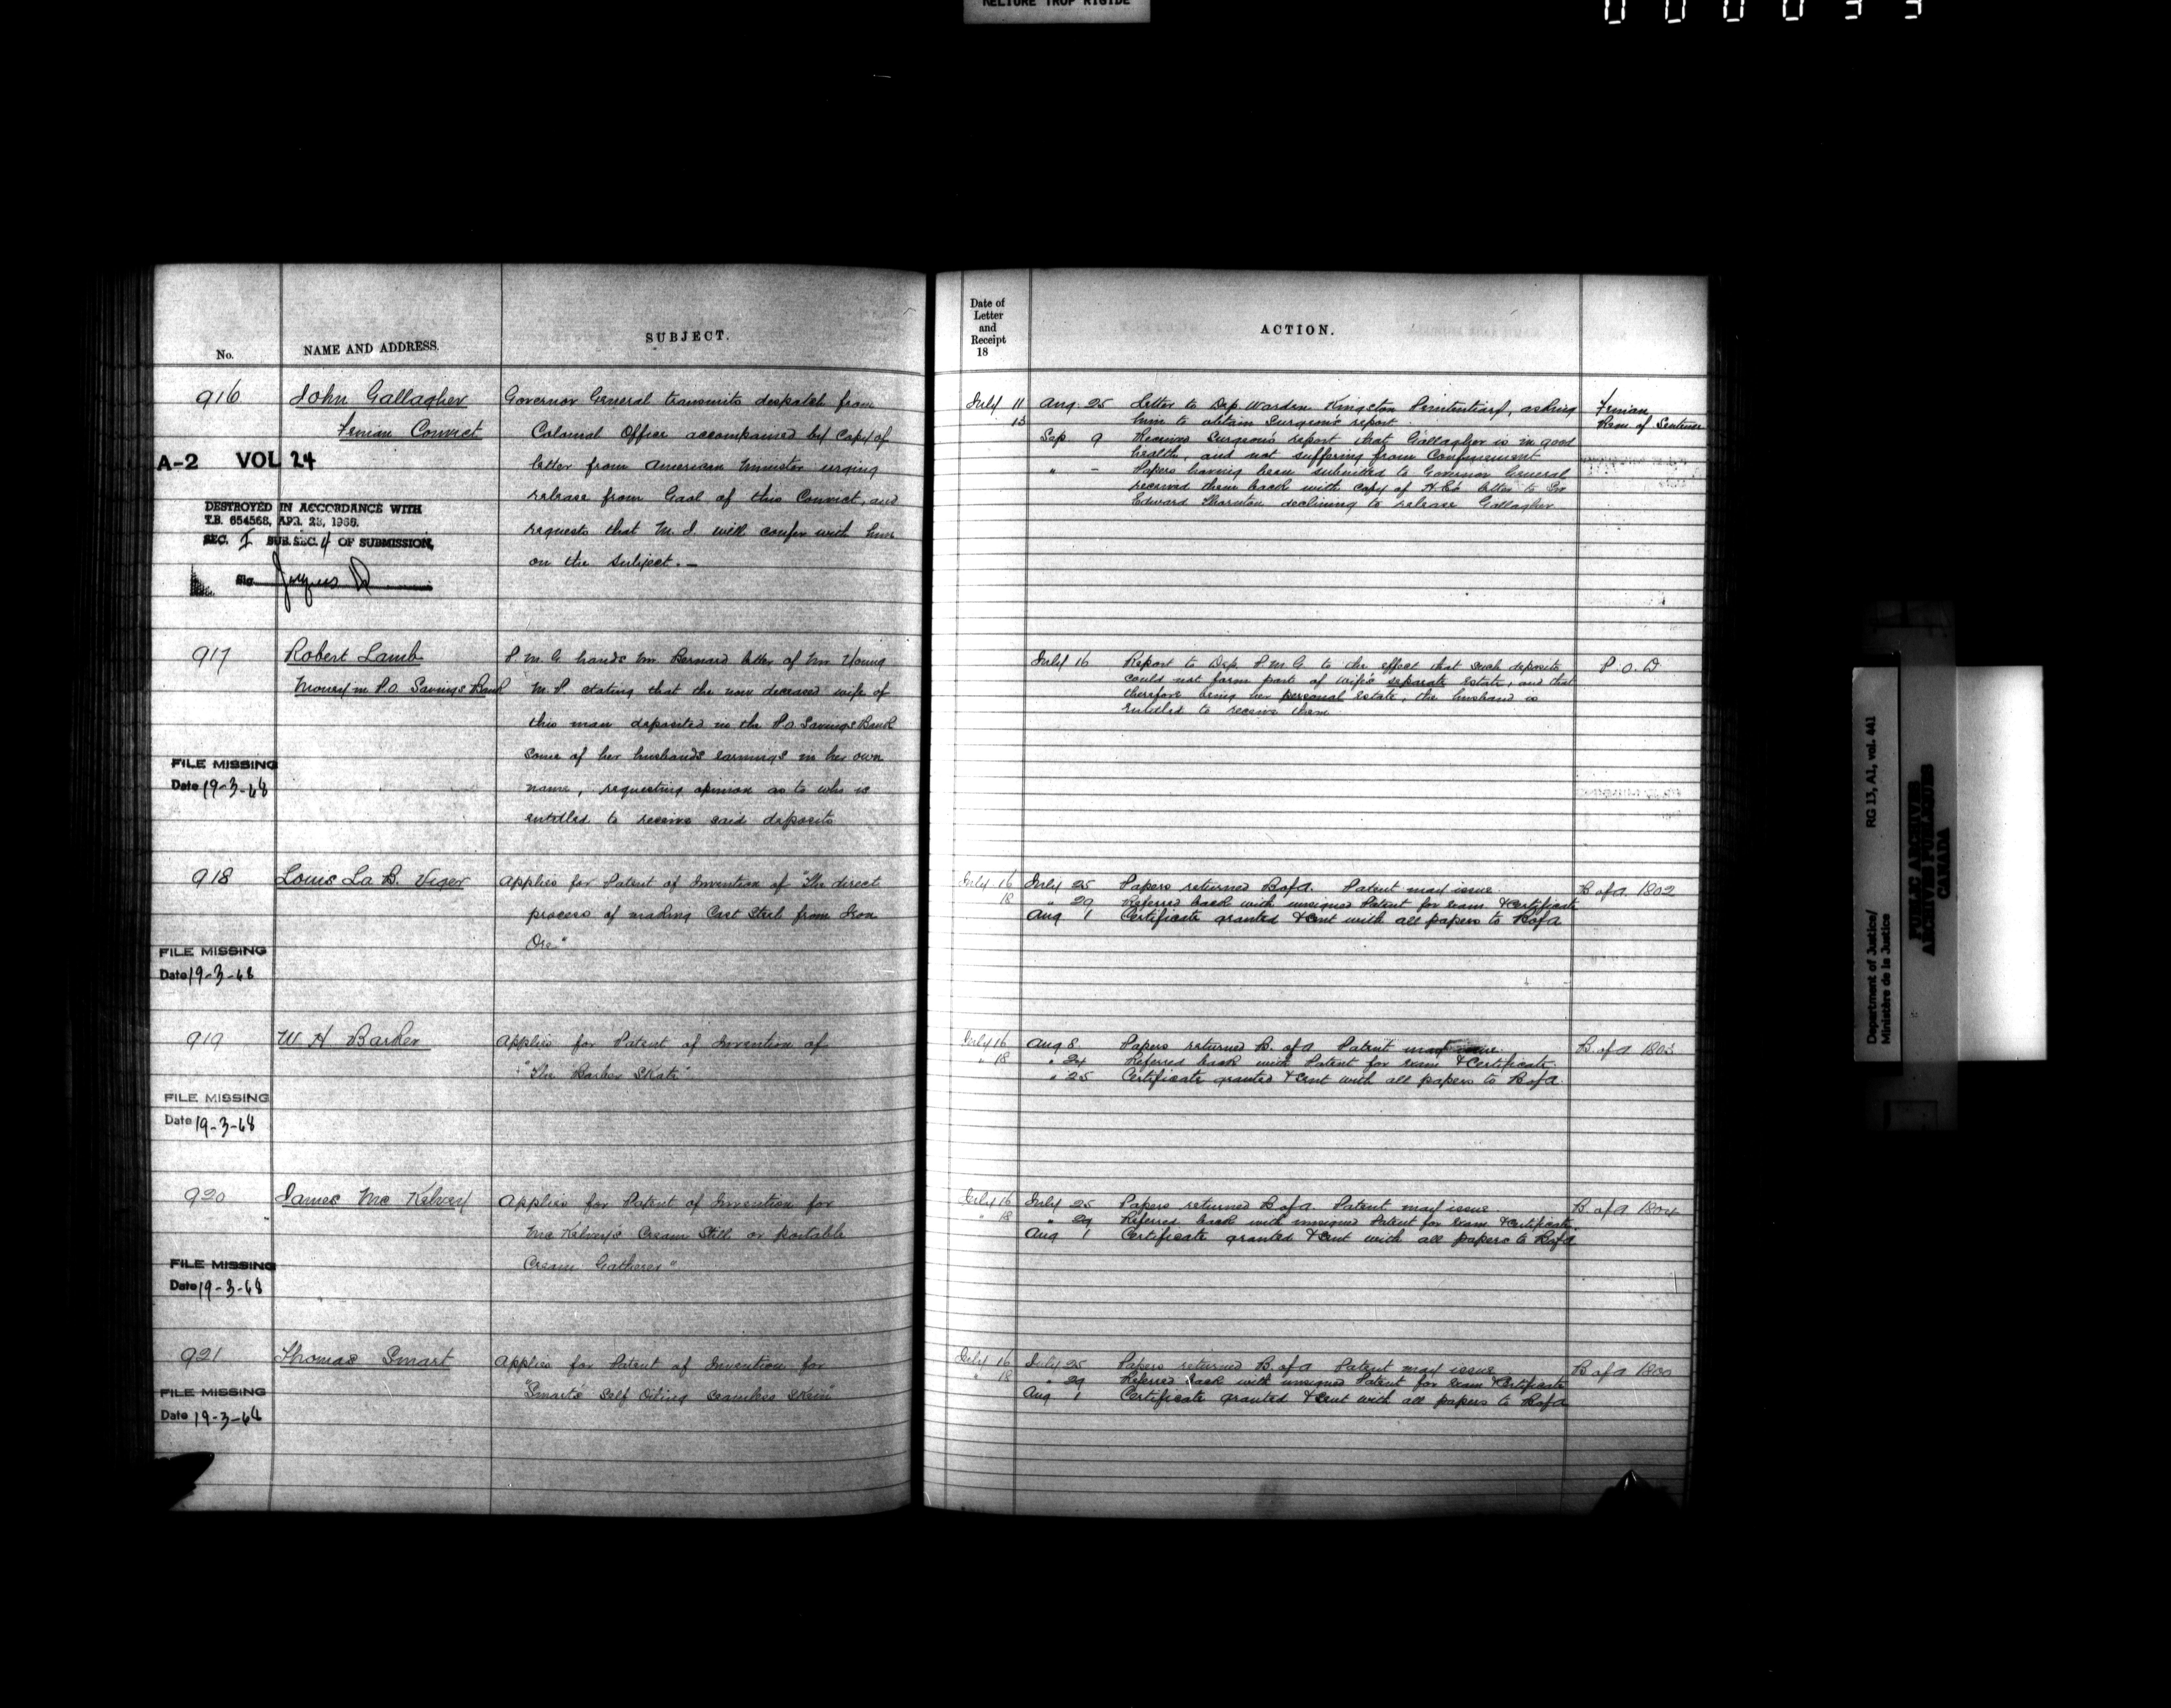 RELIURE TROP RIGIDE
000033
No.
NAME AND ADDRESS.
SUBJECT.
916
John Gallagher
Fenian Convict
A-2 VOL 24
DESTROYED IN ACCORDANCE WITH
T.B. 654568, APR. 28, 1966.
SEC. I SUB.SEC. 4 OF SUBMISSION,
Sig
Governor General transmits despatch from
Colonial Office accompanied by copy of
letter from American Minister urging
release from Gaol of this Convict, and
requests that M. J. will confer with him
on the subject. —
917
Robert Lamb
Money in P.O. Savings Bank
FILE MISSING
Date 19-3-68
P. M. G. hands Mr Bernard letter of Mr Young
M. P. stating that the now deceased wife of
this man deposited in the P.O. Savings Bank
some of her husbands earnings in her own
name, requesting opinion as to who is
entitled to receive said deposits
918
Louis La B. Viger
FILE MISSING
Date 19-3-68
Applies for Patent of Invention of "The direct
process of making Cast Steel from Iron
Ore"
919
W H Barker
FILE MISSING
Date 19-3-68
Applies for Patent of Invention of
"The Barker Skate"
920
James Mc Kelvey
FILE MISSING
Date 19-3-68
Applies for Patent of Invention for
Mc Kelvey's Cream Still or portable
Cream Gatherer"
921
Thomas Smart
FILE MISSING
Date 19-3-68
Applies for Patent of Invention for
"Smart's Self Oiling Seamless Skein"
Date of
Letter
and
Receipt
18
ACTION.
July 11 Aug. 25 Letter to Dep. Warden Kingston Penitentiary, asking
13 him to obtain Surgeon's report
Sep 9 Received Surgeon's report that Gallagher is in good
health, and not suffering from Confinement
" - Papers having been submitted to Governor General
received them back with copy of H.E's letter to Sir
Edward Thornton declining to release Gallagher
Fenian
Rem of Sentence
July 16 Report to Dep. P.M.G. to the effect that such deposits
could not form part of wife's separate estate, and that
therefore being her personal estate, the husband is
entitled to receive them
P. O. D
July 16 July 25 Papers returned B of A. Patent may issue.
18 " 29 Referred back with unsigned Patent for exam. & Certificate
Aug 1 Certificate granted & sent with all papers to B of A
B of A. 1802
July 16 Aug 8. Papers returned B. of A Patent may issue.
" 18 " 24 Referred back with Patent for exam & Certificate
" 25 Certificate granted & sent with all papers to B of A.
B. of A 1803
July 16 July 25 Papers returned B. of A. Patent may issue
" 18 " 29 Referred back with unsigned Patent for exam & Certificate.
Aug 1 Certificate granted & sent with all papers to B of A
B of A 1804
July 16 July 25 Papers returned B. of A Patent may issue
" 18 " 29 Referred back with unsigned Patent for exam & Certificate
Aug 1 Certificate granted & sent with all papers to B of A
B of A
Department of Justice/ RG 13, A1, vol. 441
Ministère de la Justice
PUBLIC ARCHIVES
ARCHIVES PUBLIQUES
CANADA